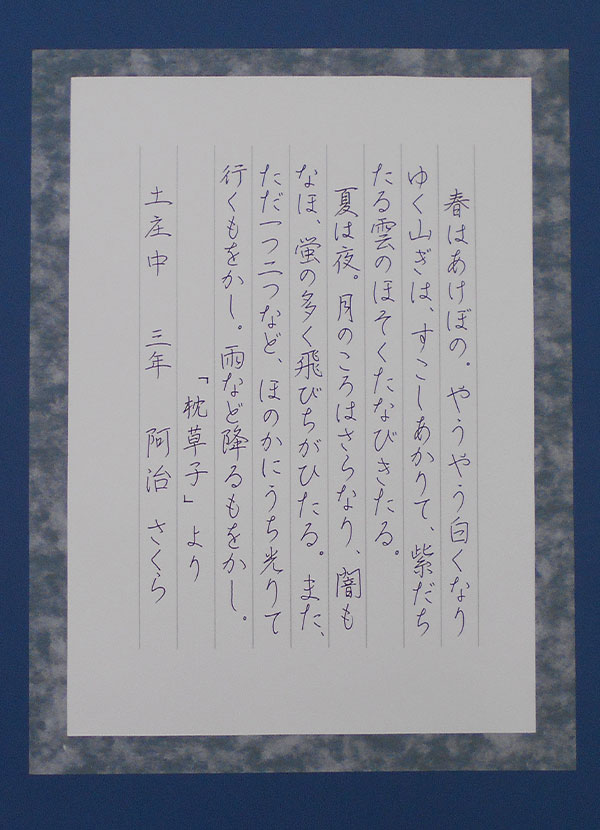 春はあけぼの。やうやう白くなり
ゆく山ぎは、すこしあかりて、紫だち
たる雲のほそくたなびきたる。
夏は夜。月のころはさらなり、闇も
なほ、蛍の多く飛びちがひたる。また、
ただ一つ二つなど、ほのかにうち光りて
行くもをかし。雨など降るもをかし。
「枕草子」より
土庄中 三年 阿治 さくら